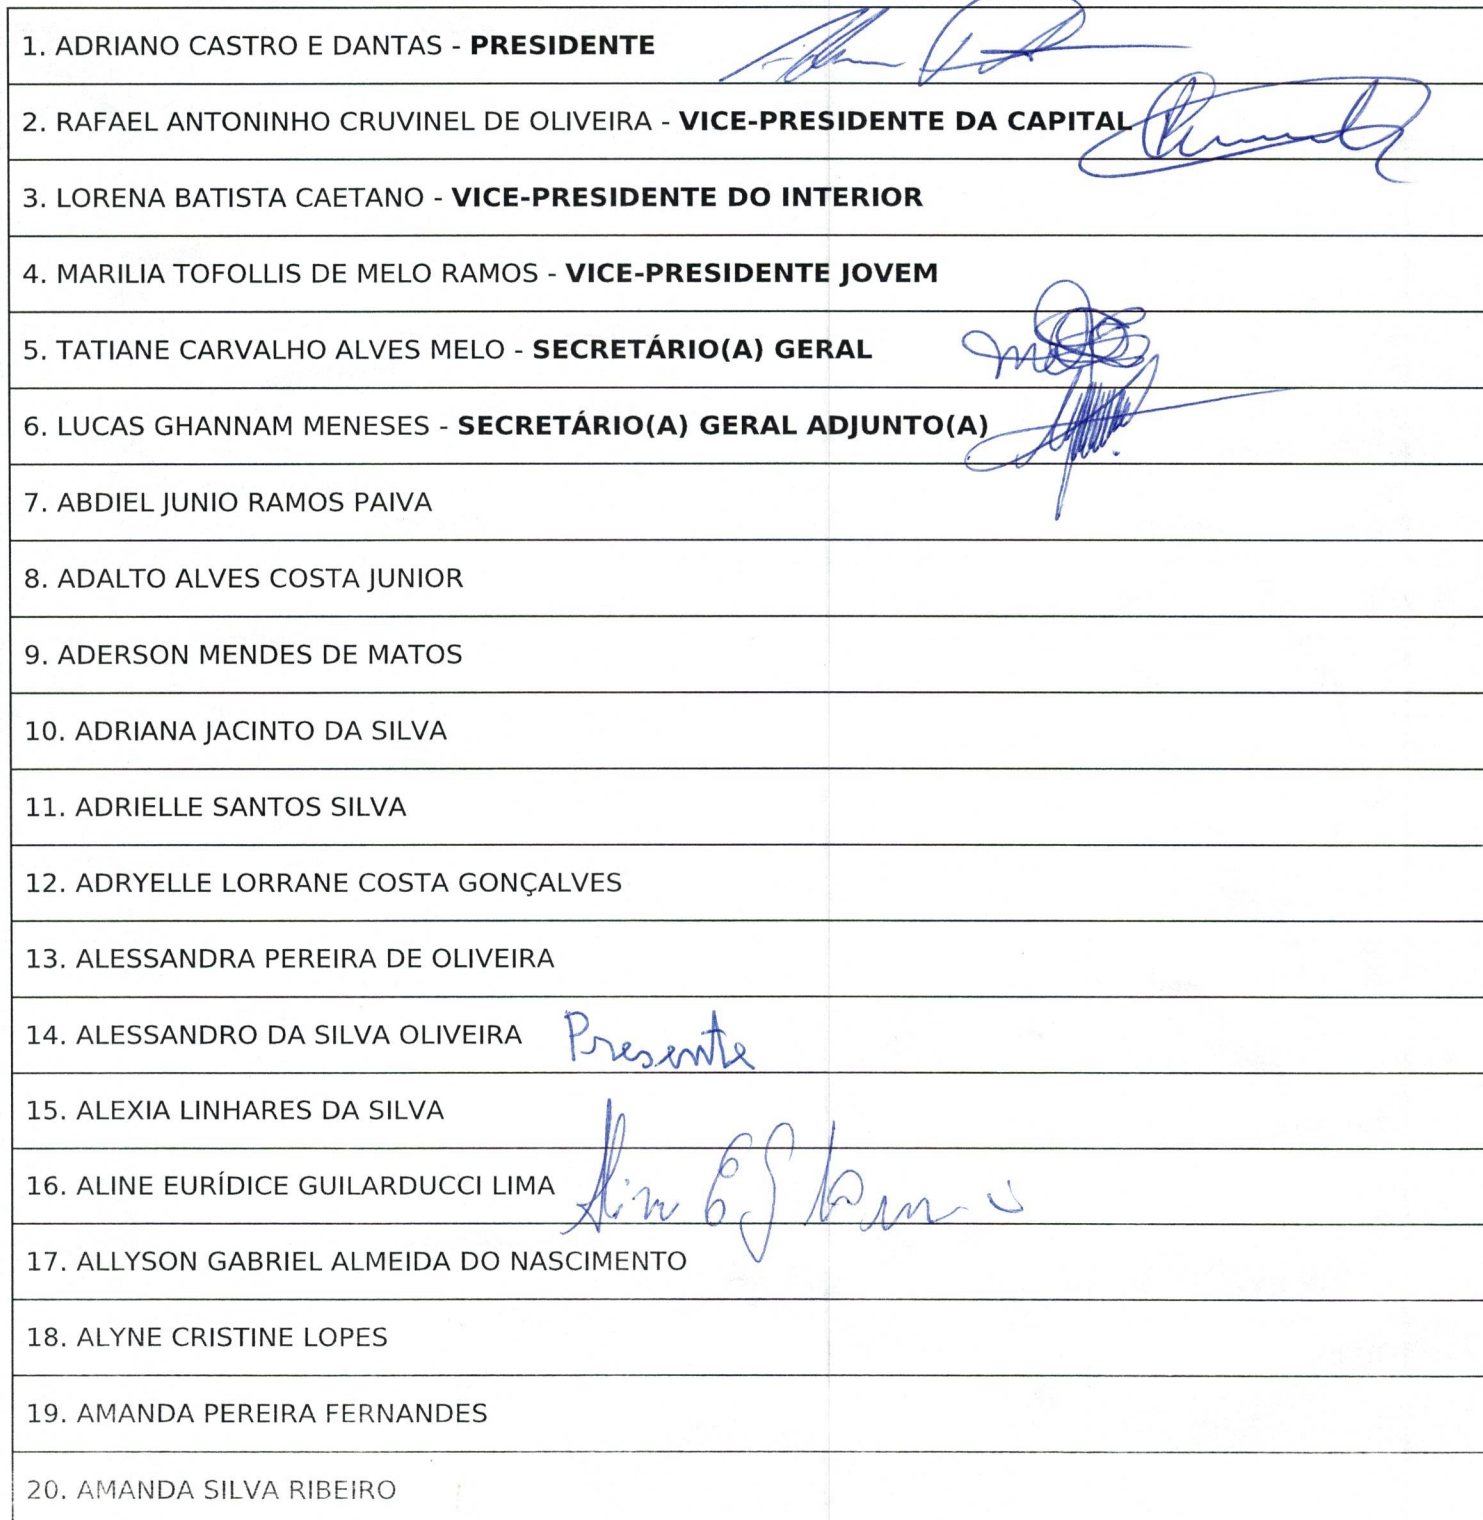 1. ADRIANO CASTRO E DANTAS - PRESIDENTE
2. RAFAEL ANTONINHO CRUVINEL DE OLIVEIRA - VICE-PRESIDENTE DA CAPITAL
3. LORENA BATISTA CAETANO - VICE-PRESIDENTE DO INTERIOR
4. MARILIA TOFOLLIS DE MELO RAMOS - VICE-PRESIDENTE JOVEM
5. TATIANE CARVALHO ALVES MELO - SECRETÁRIO(A) GERAL
6. LUCAS GHANNAM MENESES - SECRETÁRIO(A) GERAL ADJUNTO(A)
7. ABDIEL JUNIO RAMOS PAIVA
8. ADALTO ALVES COSTA JUNIOR
9. ADERSON MENDES DE MATOS
10. ADRIANA JACINTO DA SILVA
11. ADRIELLE SANTOS SILVA
12. ADRYELLE LORRANE COSTA GONÇALVES
13. ALESSANDRA PEREIRA DE OLIVEIRA
14. ALESSANDRO DA SILVA OLIVEIRA Presente
15. ALEXIA LINHARES DA SILVA
16. ALINE EURÍDICE GUILARDUCCI LIMA
17. ALLYSON GABRIEL ALMEIDA DO NASCIMENTO
18. ALYNE CRISTINE LOPES
19. AMANDA PEREIRA FERNANDES
20. AMANDA SILVA RIBEIRO